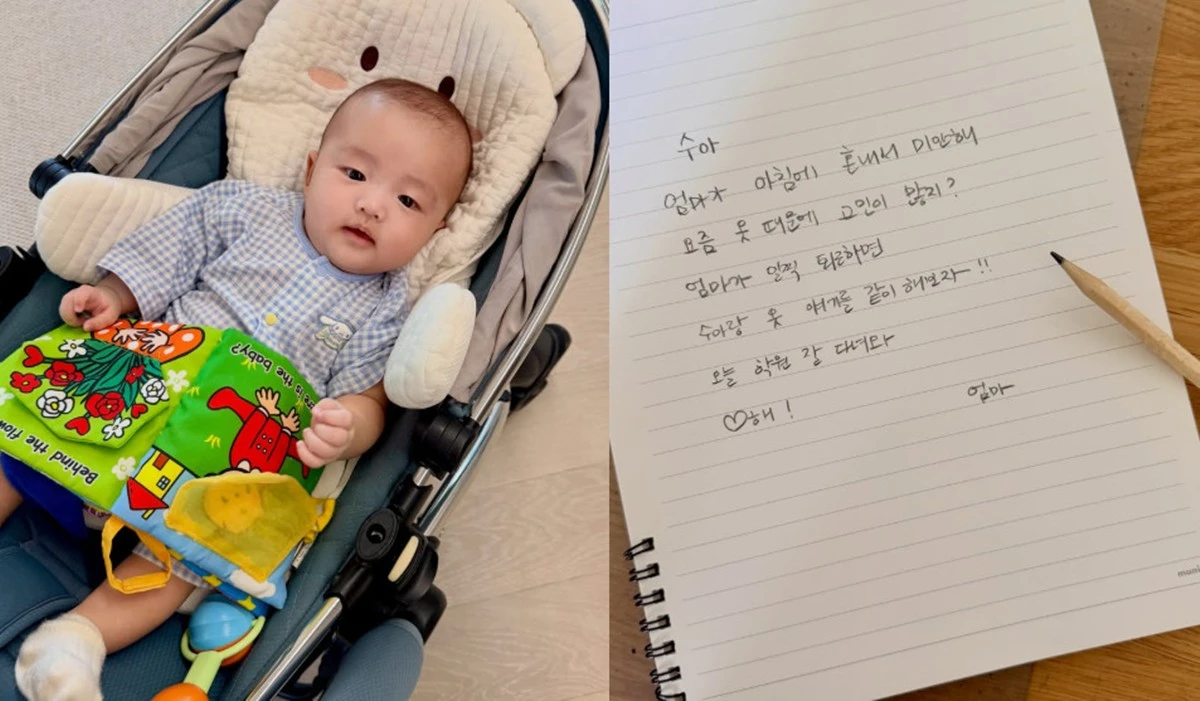 Behind the flow
e is the baby?
수아
엄마가 아침에 혼내서 미안해
요즘 옷 때문에 고민이 많지?
엄마가 일직 퇴근하면
수아랑 옷 얘기를 같이 해보자~!!
오늘 학원 잘 다녀와
♡해!
엄마